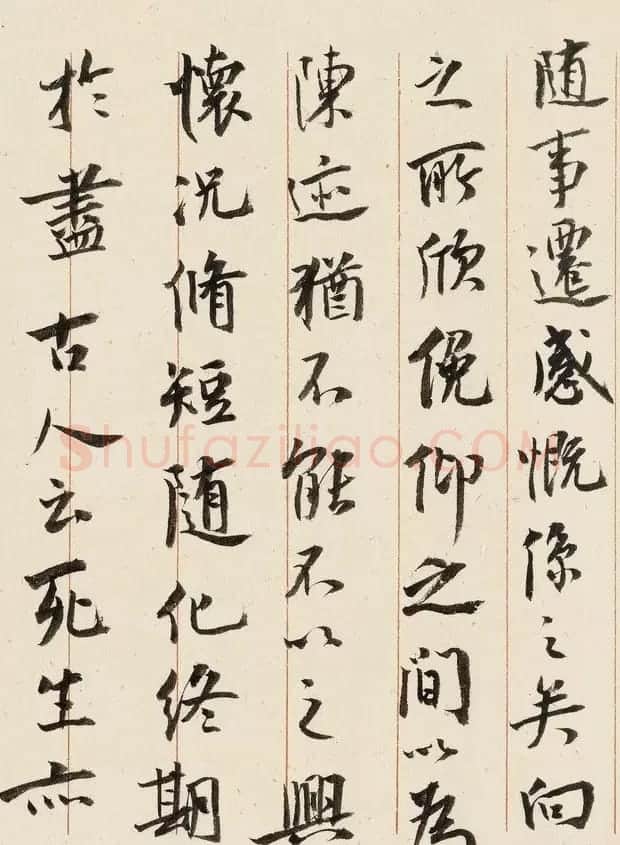 随事遷感慨係之矣向
之所欣俛仰之間以為
陳迹猶不能不以之興
懷況脩短随化終期
於盡古人云死生亦
Shufaziliao.COM